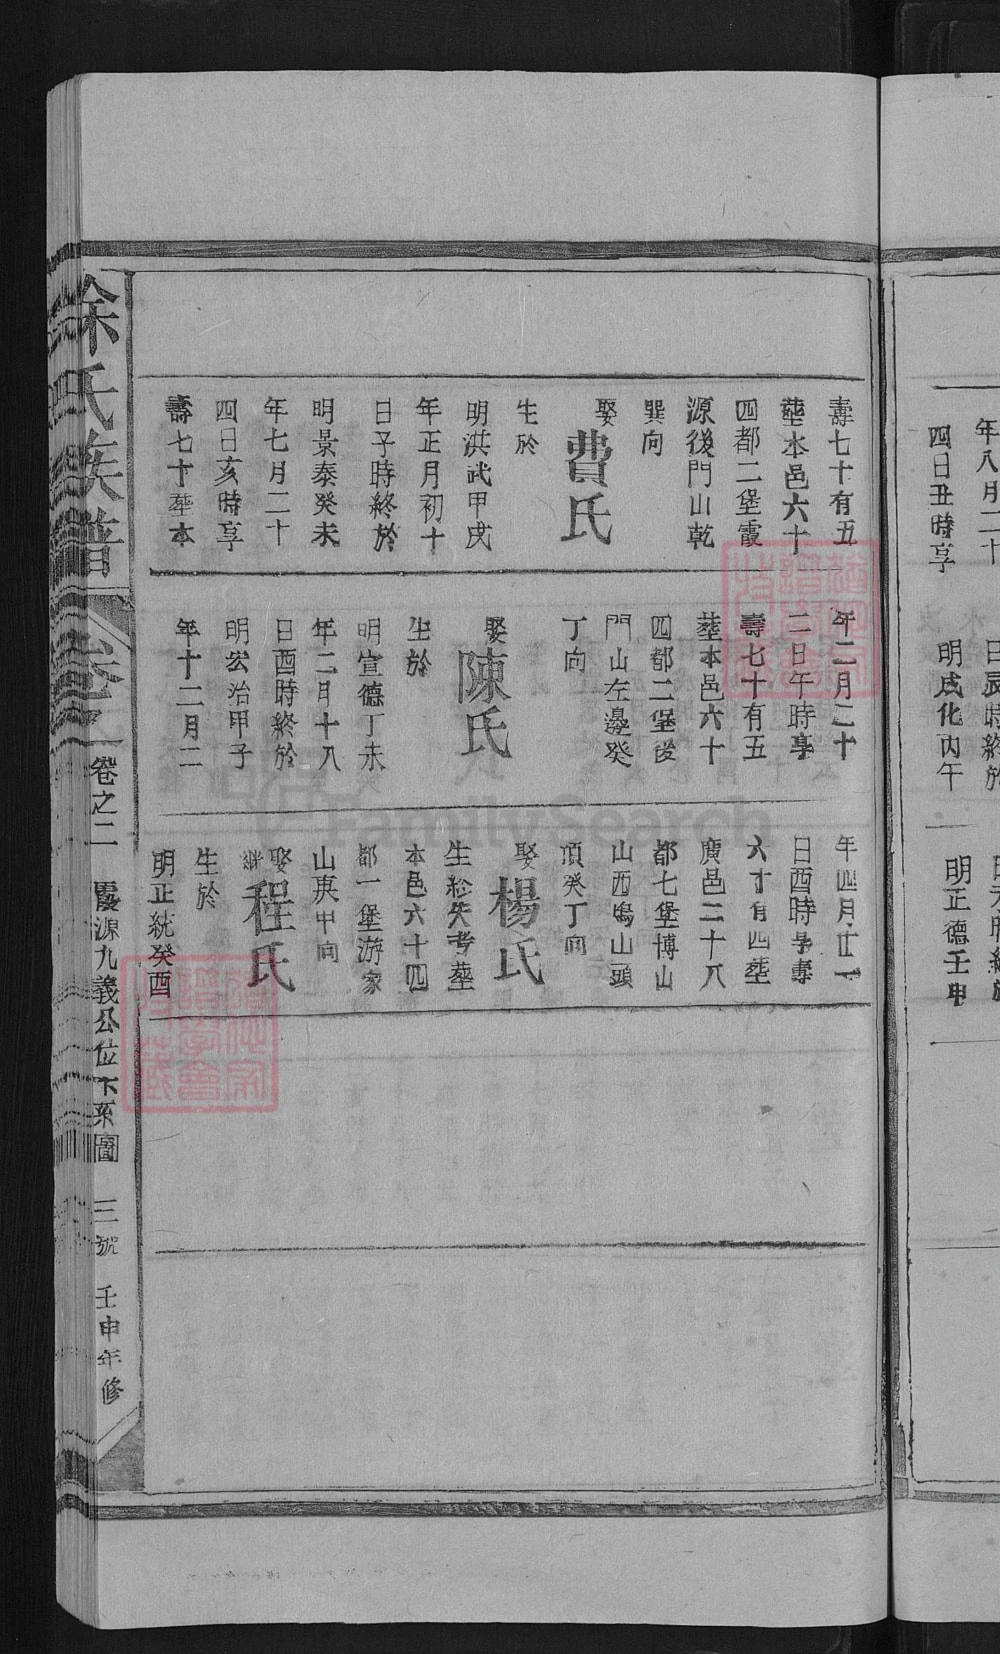 年八月二十
四日丑時享
日辰時終於
明成化丙午
明正德壬申
壽七十有五
塟本邑六十
四都二堡霞
源後門山乾
巽向
娶費氏
生於
明洪武甲戌
年正月初十
日子時終於
明景泰癸未
年七月二十
四日亥時享
壽七十塟本
年二月二十
二日午時享
壽七十有五
塟本邑六十
四都二堡後
門山左邊癸
丁向
娶陳氏
生於
明宣德丁未
年二月十八
日酉時終於
明宏治甲子
年十二月二
年四月廿一
日酉時享壽
六十有四塟
廣邑二十八
都七堡博山
山西塢山頭
頂癸丁向
娶楊氏
生終失考塟
本邑六十四
都一堡游家
山庚甲向
繼娶程氏
生於
明正統癸酉
徐氏族譜
卷之二
霞源九義公位下系圖
三號
壬申年修
FamilySearch